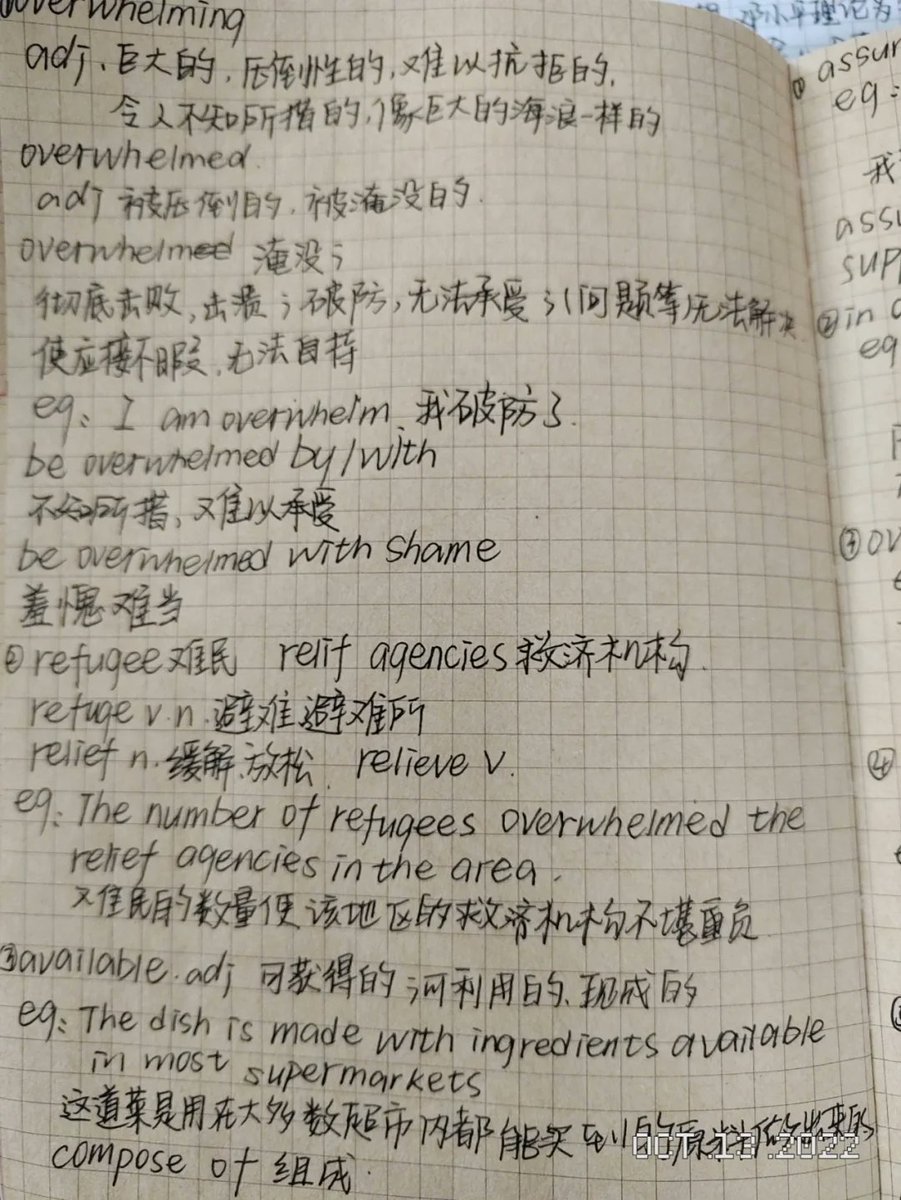 overwhelming
adj、巨大的，压倒性的，难以抗拒的，
令人不知所措的，像巨大的海浪一样的
overwhelmed
adj 被压倒的，被淹没的．
overwhelmed 淹没；
彻底击败，击溃；破防，无法承受；(问题等)无法解决
使应接不暇，无法自持
eg: I am overwhelm、我破防了．
be overwhelmed by/with
不知所措、难以承受
be overwhelmed with shame
羞愧难当
② refugee 难民 relif agencies 救济机构．
refuge v.n. 避难 避难所
relief n. 缓解、放松． relieve v.
eg: The number of refugees overwhelmed the
relief agencies in the area.
难民的数量使该地区的救济机构不堪重负
③ available. adj 可获得的；可利用的、现成的
eg: The dish is made with ingredients available
in most supermarkets
这道菜是用在大多数超市内都能买到的原料做出来的
compose of 组成．
① assu
eg:
我
assu
supp
② in
eg
③ ov
④
OCT 18 2022